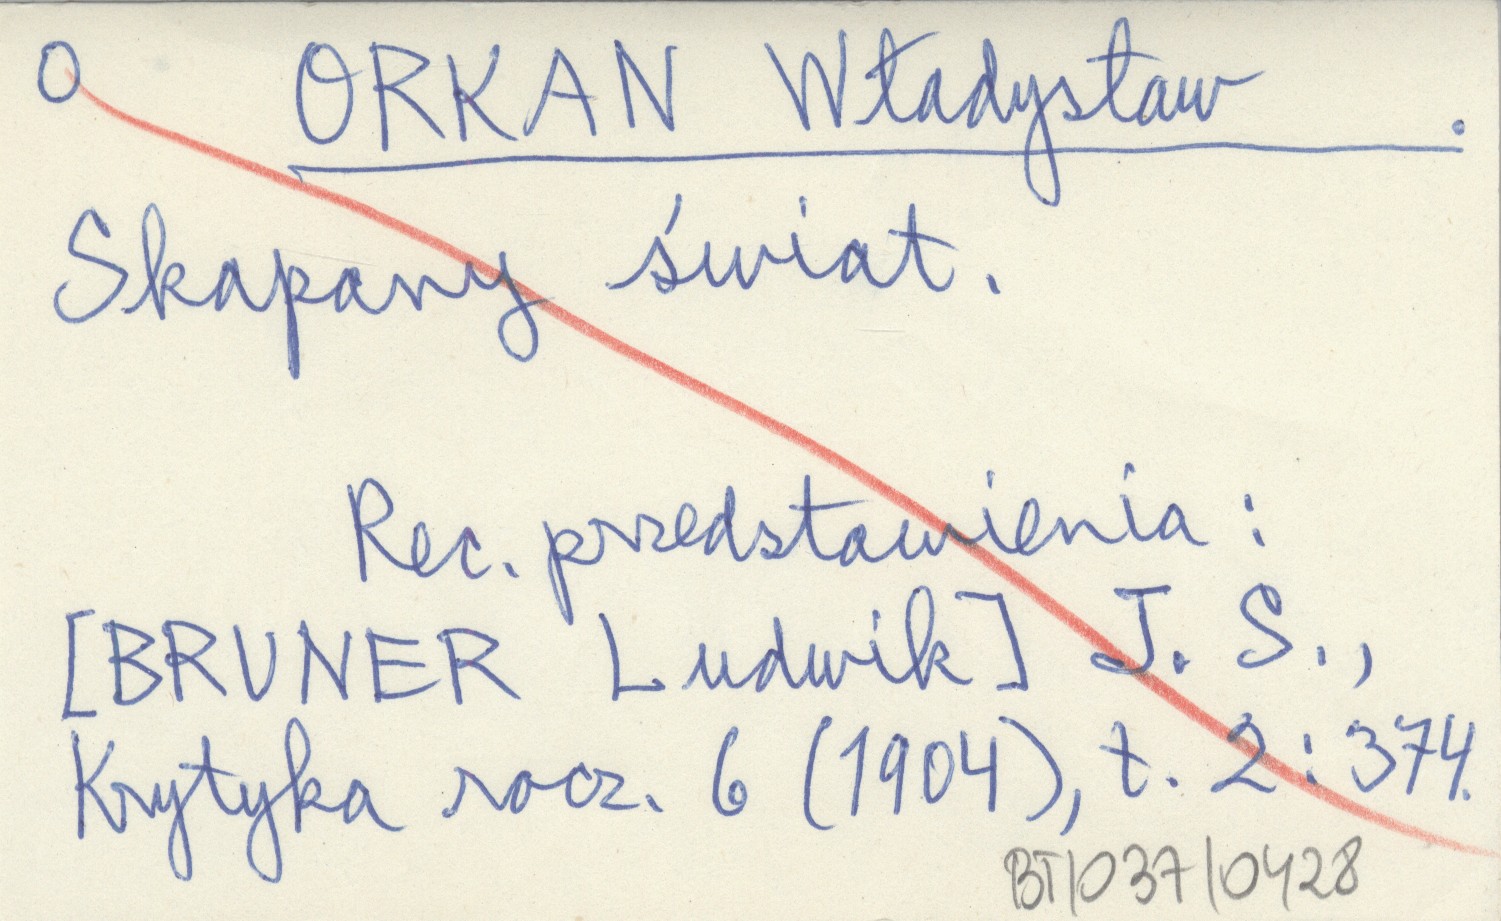 O ORKAN Władysław .
Skapany świat.
Rec. przedstawienia :
[BRUNER Ludwik] J. S.,
Krytyka rocz. 6 (1904), t. 2 : 374.
BT/037/0428